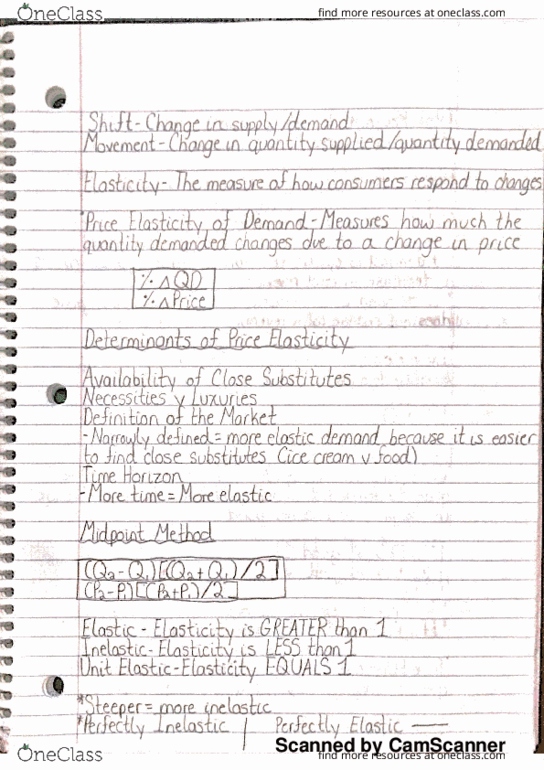 OneClass
find more resources at oneclass.com
Shift - Change in supply/demand
Movement - Change in quantity supplied/quantity demanded
Elasticity - The measure of how consumers respond to changes
*Price Elasticity of Demand - Measures how much the
quantity demanded changes due to a change in price
% △ QD
% △ Price
Determinants of Price Elasticity
Availability of Close Substitutes
Necessities v Luxuries
Definition of the Market
- Narrowly defined = more elastic demand, because it is easier
to find close substitutes (ice cream v food)
Time Horizon
- More time = More elastic
Midpoint Method
(Q₂-Q₁)[(Q₂+Q₁)/2]
(P₂-P₁)[(P₂+P₁)/2]
Elastic - Elasticity is GREATER than 1
Inelastic - Elasticity is LESS than 1
Unit Elastic - Elasticity EQUALS 1
*Steeper = more inelastic
*Perfectly Inelastic | Perfectly Elastic —
Scanned by CamScanner
OneClass
find more resources at oneclass.com